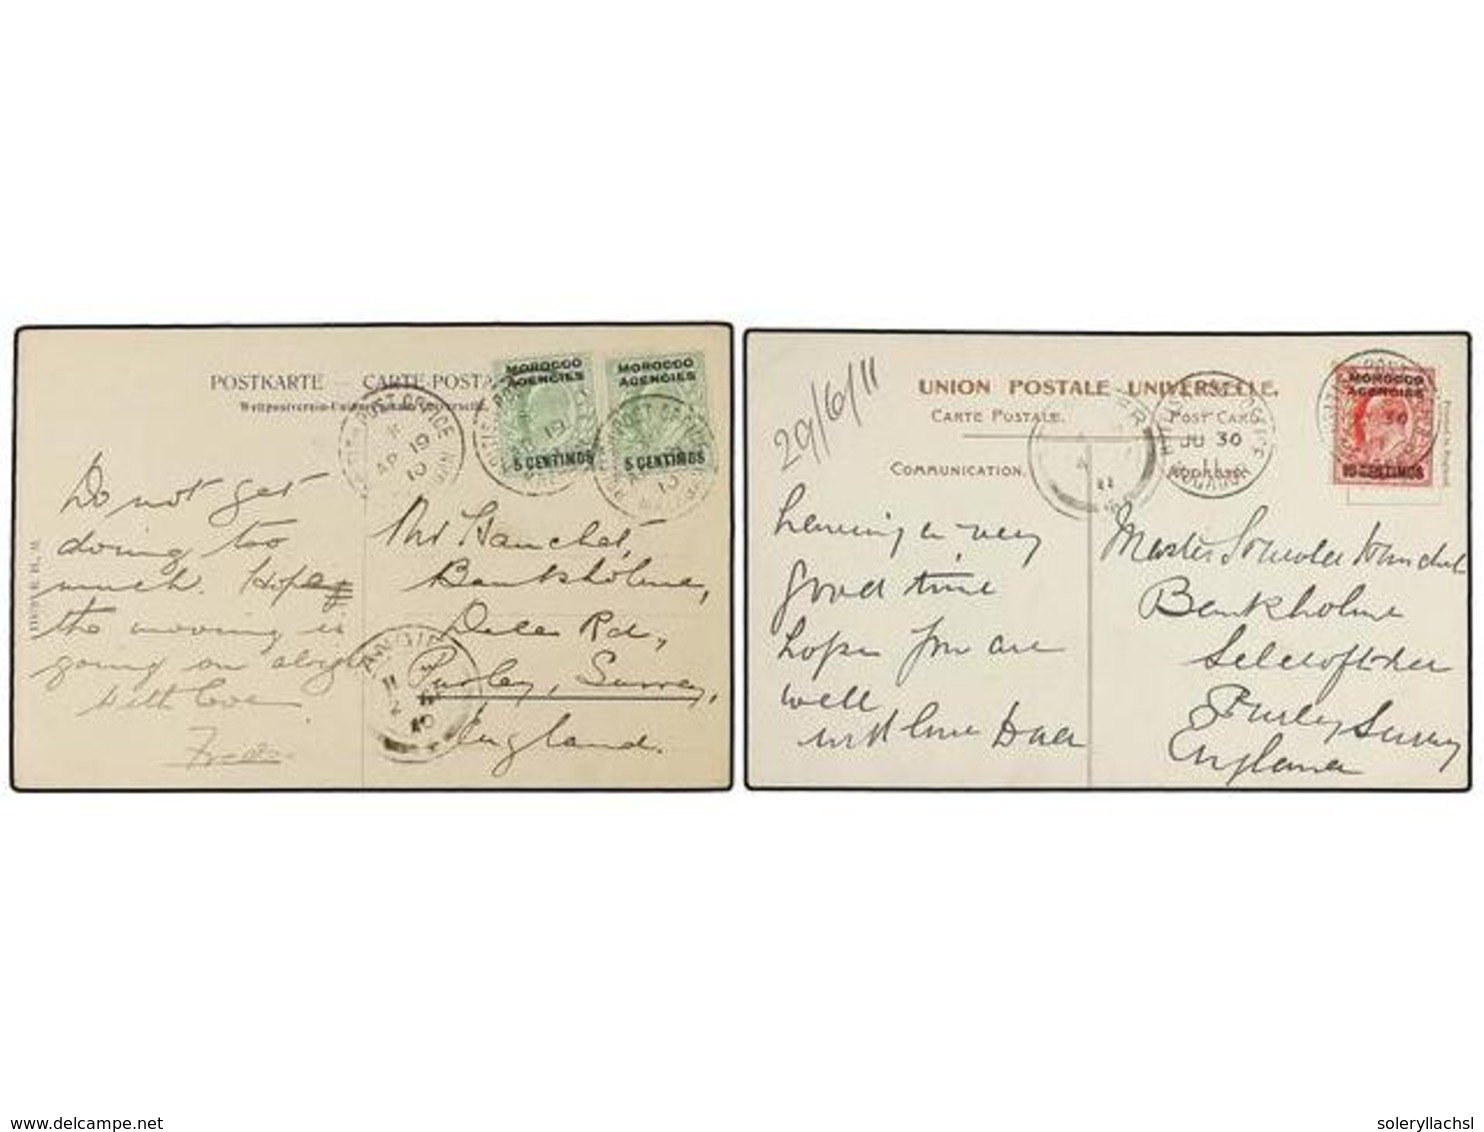 POSTKARTE — CARTE POSTA
MOROCCO AGENCIES
5 CENTIMOS
MOROCCO AGENCIES
5 CENTIMOS
POST OFFICE
AP 19
10
Do not get
doing too
much. Hope
the moving is
going on alright
With love
Fred.
Bankholme,
Rd.,
Purley, Surrey,
England.
29/6/11
UNION POSTALE UNIVERSELLE.
CARTE POSTALE.
POST CARD
COMMUNICATION.
JU 30
11
MOROCCO AGENCIES
30
10 CENTIMOS
having a very
good time
hope you are
well
with love
Master
Bankholme
Purley Surrey
England
delcampe.net
soleryllachsl